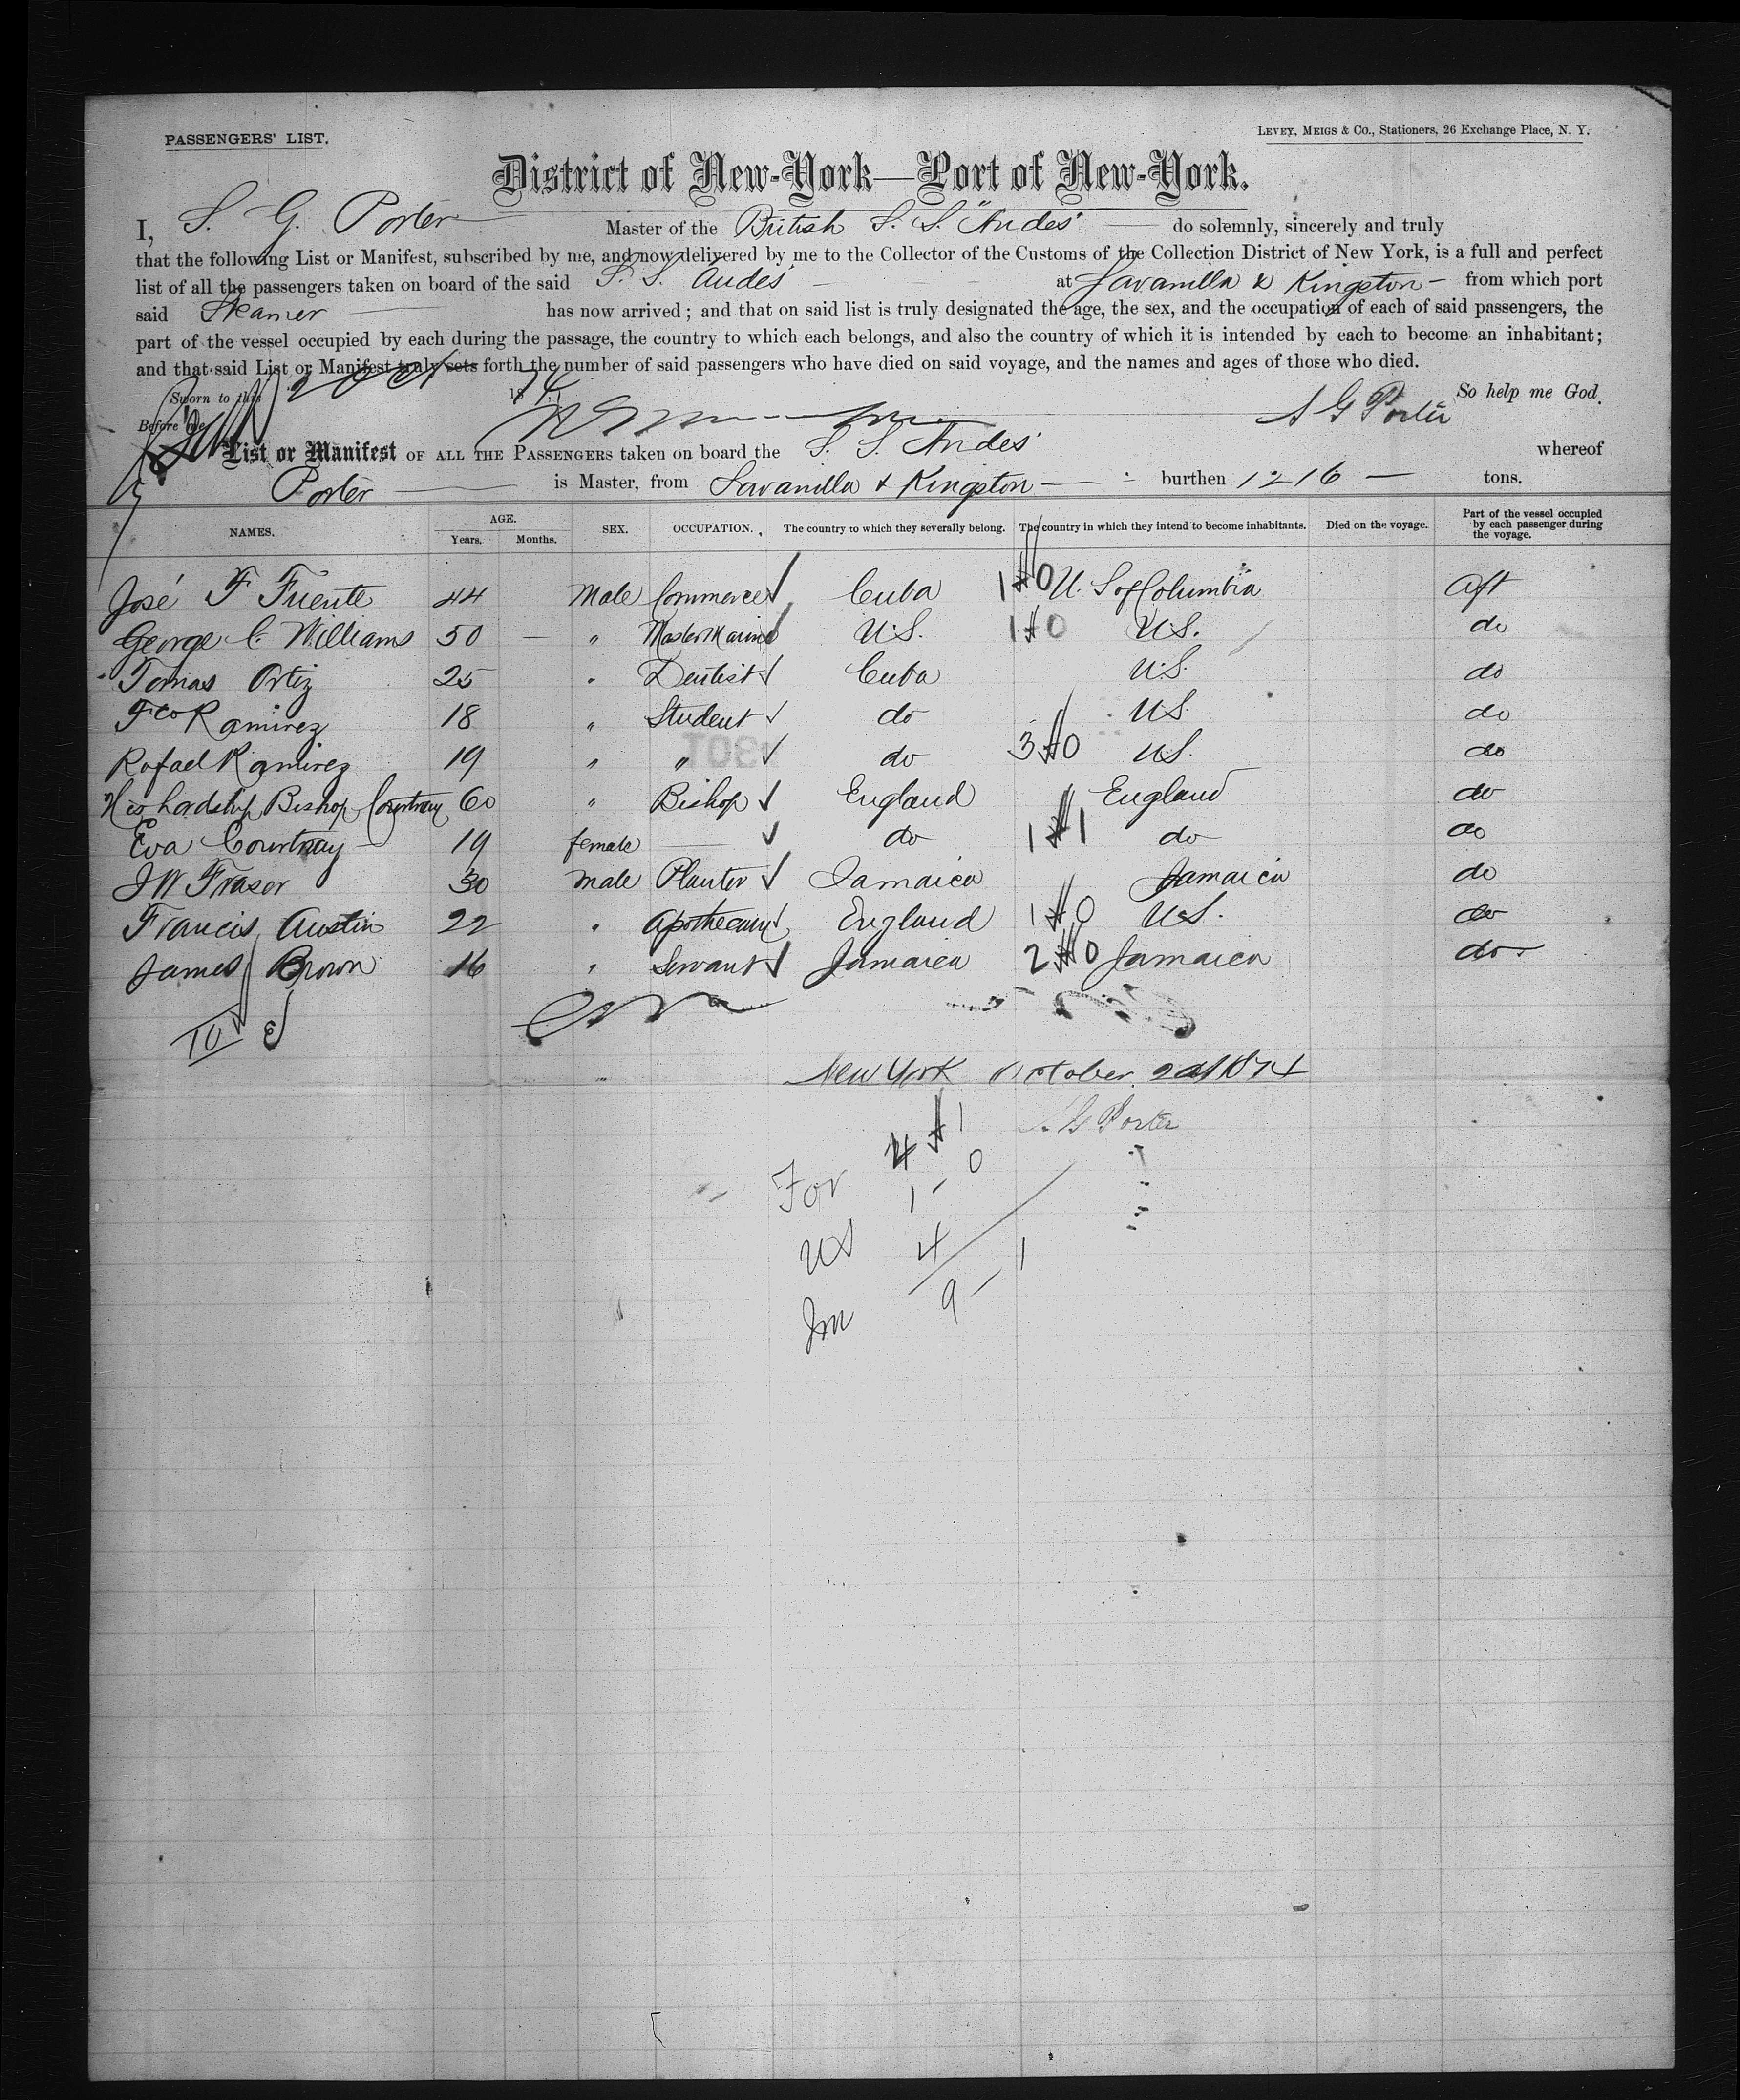 PASSENGERS' LIST.
LEVEY, MEIGS & Co., Stationers, 26 Exchange Place, N. Y.
District of New-York—Port of New-York.
I, S. G. Porter Master of the British S. S. "Andes" do solemnly, sincerely and truly
that the following List or Manifest, subscribed by me, and now delivered by me to the Collector of the Customs of the Collection District of New York, is a full and perfect
list of all the passengers taken on board of the said S. S. Andes at Savanilla & Kingston from which port
said Steamer has now arrived; and that on said list is truly designated the age, the sex, and the occupation of each of said passengers, the
part of the vessel occupied by each during the passage, the country to which each belongs, and also the country of which it is intended by each to become an inhabitant;
and that said List or Manifest truly sets forth the number of said passengers who have died on said voyage, and the names and ages of those who died.
Sworn to this 2 Oct 1874 So help me God.
Before me S G Porter
List or Manifest OF ALL THE PASSENGERS taken on board the S. S. Andes whereof
Porter is Master, from Savanilla & Kingston burthen 1216 tons.
NAMES. AGE. Years. Months. SEX. OCCUPATION. The country to which they severally belong. The country in which they intend to become inhabitants. Died on the voyage. Part of the vessel occupied by each passenger during the voyage.
José F Fuente 44 Male Commerce Cuba 1 0 U. S of Columbia Aft
George C. Williams 50 — " Master Marine U.S. 1 0 U.S. do
Tomas Ortiz 25 " Dentist Cuba U.S. do
Fco Ramirez 18 " Student do U.S. do
Rafael Ramirez 19 " " do 3 0 U.S. do
His Lordship Bishop Courtnay 60 " Bishop England England do
Eva Courtnay 19 female — do 1 1 do do
J W Fraser 30 Male Planter Jamaica Jamaica do
Francis Austin 22 " Apothecary England 1 0 U.S. do
James Brown 16 " Servant Jamaica 2 0 Jamaica do
10
New York October 2d 1874
S G Porter
For 4 1
US 1 - 0
Im 4
9 - 1